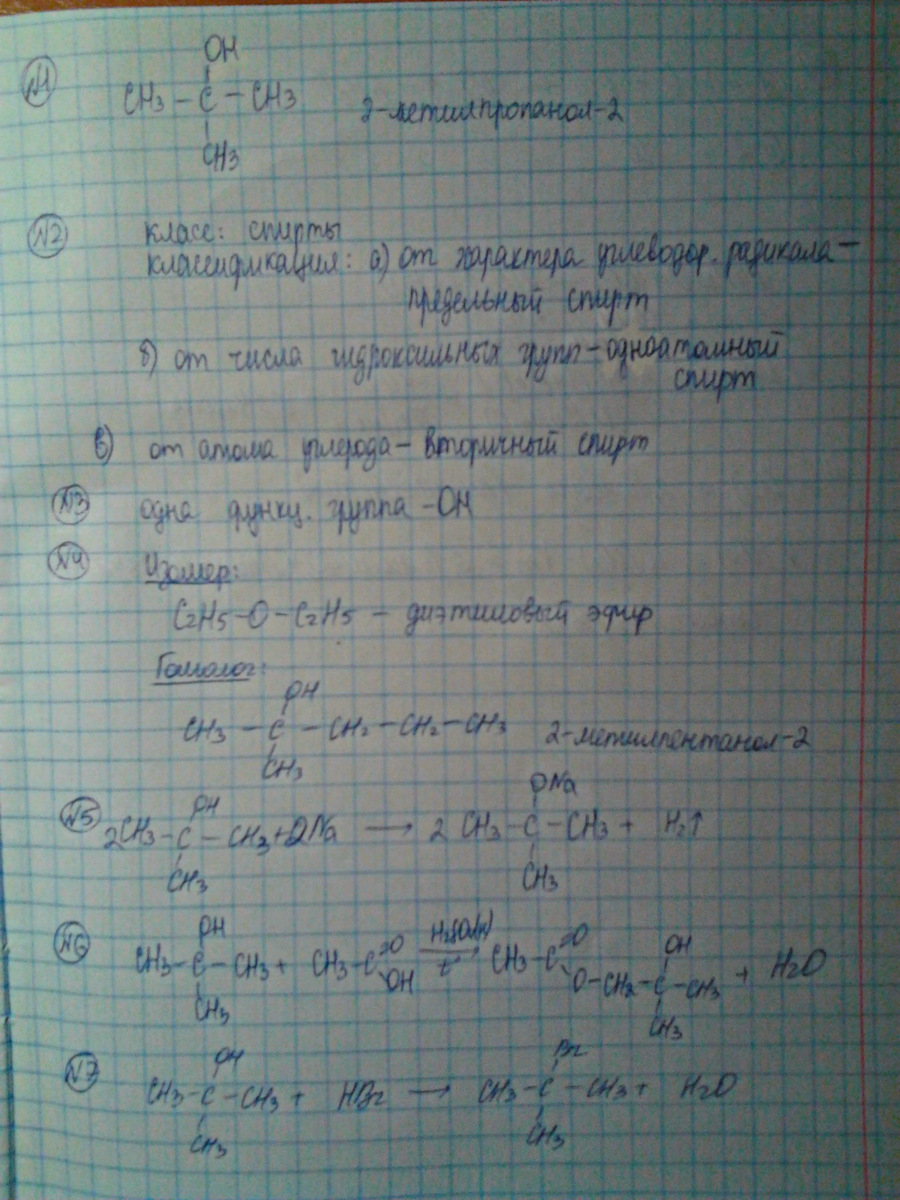 №1
OH
CH3 – C – CH3 2-метилпропанол-2
CH3
№2 класс: спирты
классификация: а) от характера углеводор. радикала –
предельный спирт
б) от числа гидроксильных групп – одноатомный
спирт
в) от атома углерода – вторичный спирт
№3 одна функц. группа -OH
№4 Изомер:
C2H5 – O – C2H5 – диэтиловый эфир
Гомолог:
OH
CH3 – C – CH2 – CH2 – CH3 2-метилпентанол-2
CH3
№5 OH ONa
2CH3 – C – CH3 + 2Na → 2 CH3 – C – CH3 + H2↑
CH3 CH3
№6 OH =O H2SO4(к) =O OH
CH3 – C – CH3 + CH3 – C → CH3 – C + H2O
OH t° O – CH2 – C – CH3
CH3 CH3
№7 OH Br
CH3 – C – CH3 + HBr → CH3 – C – CH3 + H2O
CH3 CH3